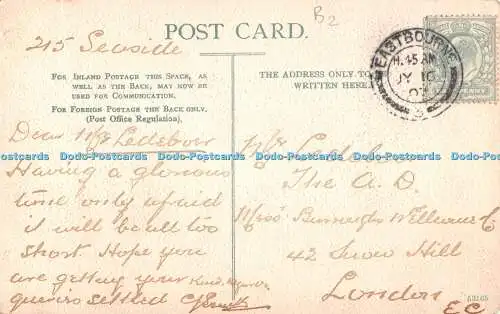 POST CARD.
B2
215 Seaside
FOR INLAND POSTAGE THIS SPACE, AS
WELL AS THE BACK, MAY NOW BE
USED FOR COMMUNICATION.
FOR FOREIGN POSTAGE THE BACK ONLY.
(Post Office Regulation).
THE ADDRESS ONLY TO
WRITTEN HERE.
EASTBOURNE
JY 16
PENNY
Dear Mr Ledeboer
Having a glorious
time only afraid
it will be all too
short. Hope you
are getting your
settled
Kind
Mr Ledeboer
The A. D.
Burroughs Wellcome Co
42 Snow Hill
London
E C
Dodo-Postcards Dodo-Postcards Dodo-Postcards Dodo-Postcards Dodo-Postcards Dodo-Postcards